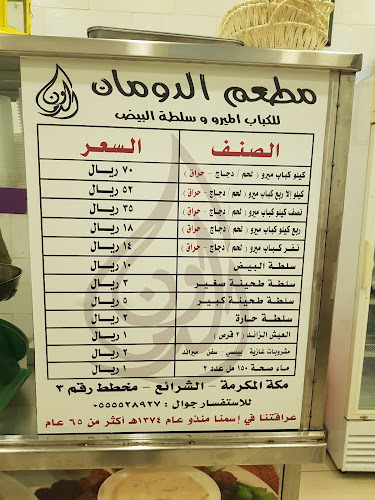 مطعم الدومان
للكباب الميرو و سلطة البيض
الصنف السعر
كيلو كباب ميرو ( لحم / دجاج - حراق ) ٧٠ ريال
كيلو الا ربع كباب ميرو ( لحم / دجاج - حراق ) ٥٢ ريال
نصف كيلو كباب ميرو ( لحم / دجاج - حراق ) ٣٥ ريال
ربع كيلو كباب ميرو ( لحم / دجاج - حراق ) ١٨ ريال
نفر كباب ميرو ( لحم / دجاج - حراق ) ١٤ ريال
سلطة البيض ١٠ ريال
سلطة طحينة صغير ٣ ريال
سلطة طحينة كبير ٥ ريال
سلطة حارة ٢ ريال
العيش الزائد ( ٢ قرص ) ١ ريال
مشروبات غازية بيبسي - سفن - ميرندا ٢ ريال
ماء صحة ١٥٠ مل عدد ٢ ١ ريال
مكة المكرمة - الشرائع - مخطط رقم ٣
للاستفسار جوال : ٠٥٥٥٥٢٨٩٢٧
عراقتنا في إسمنا منذو عام ١٣٧٤هـ أكثر من ٦٥ عام